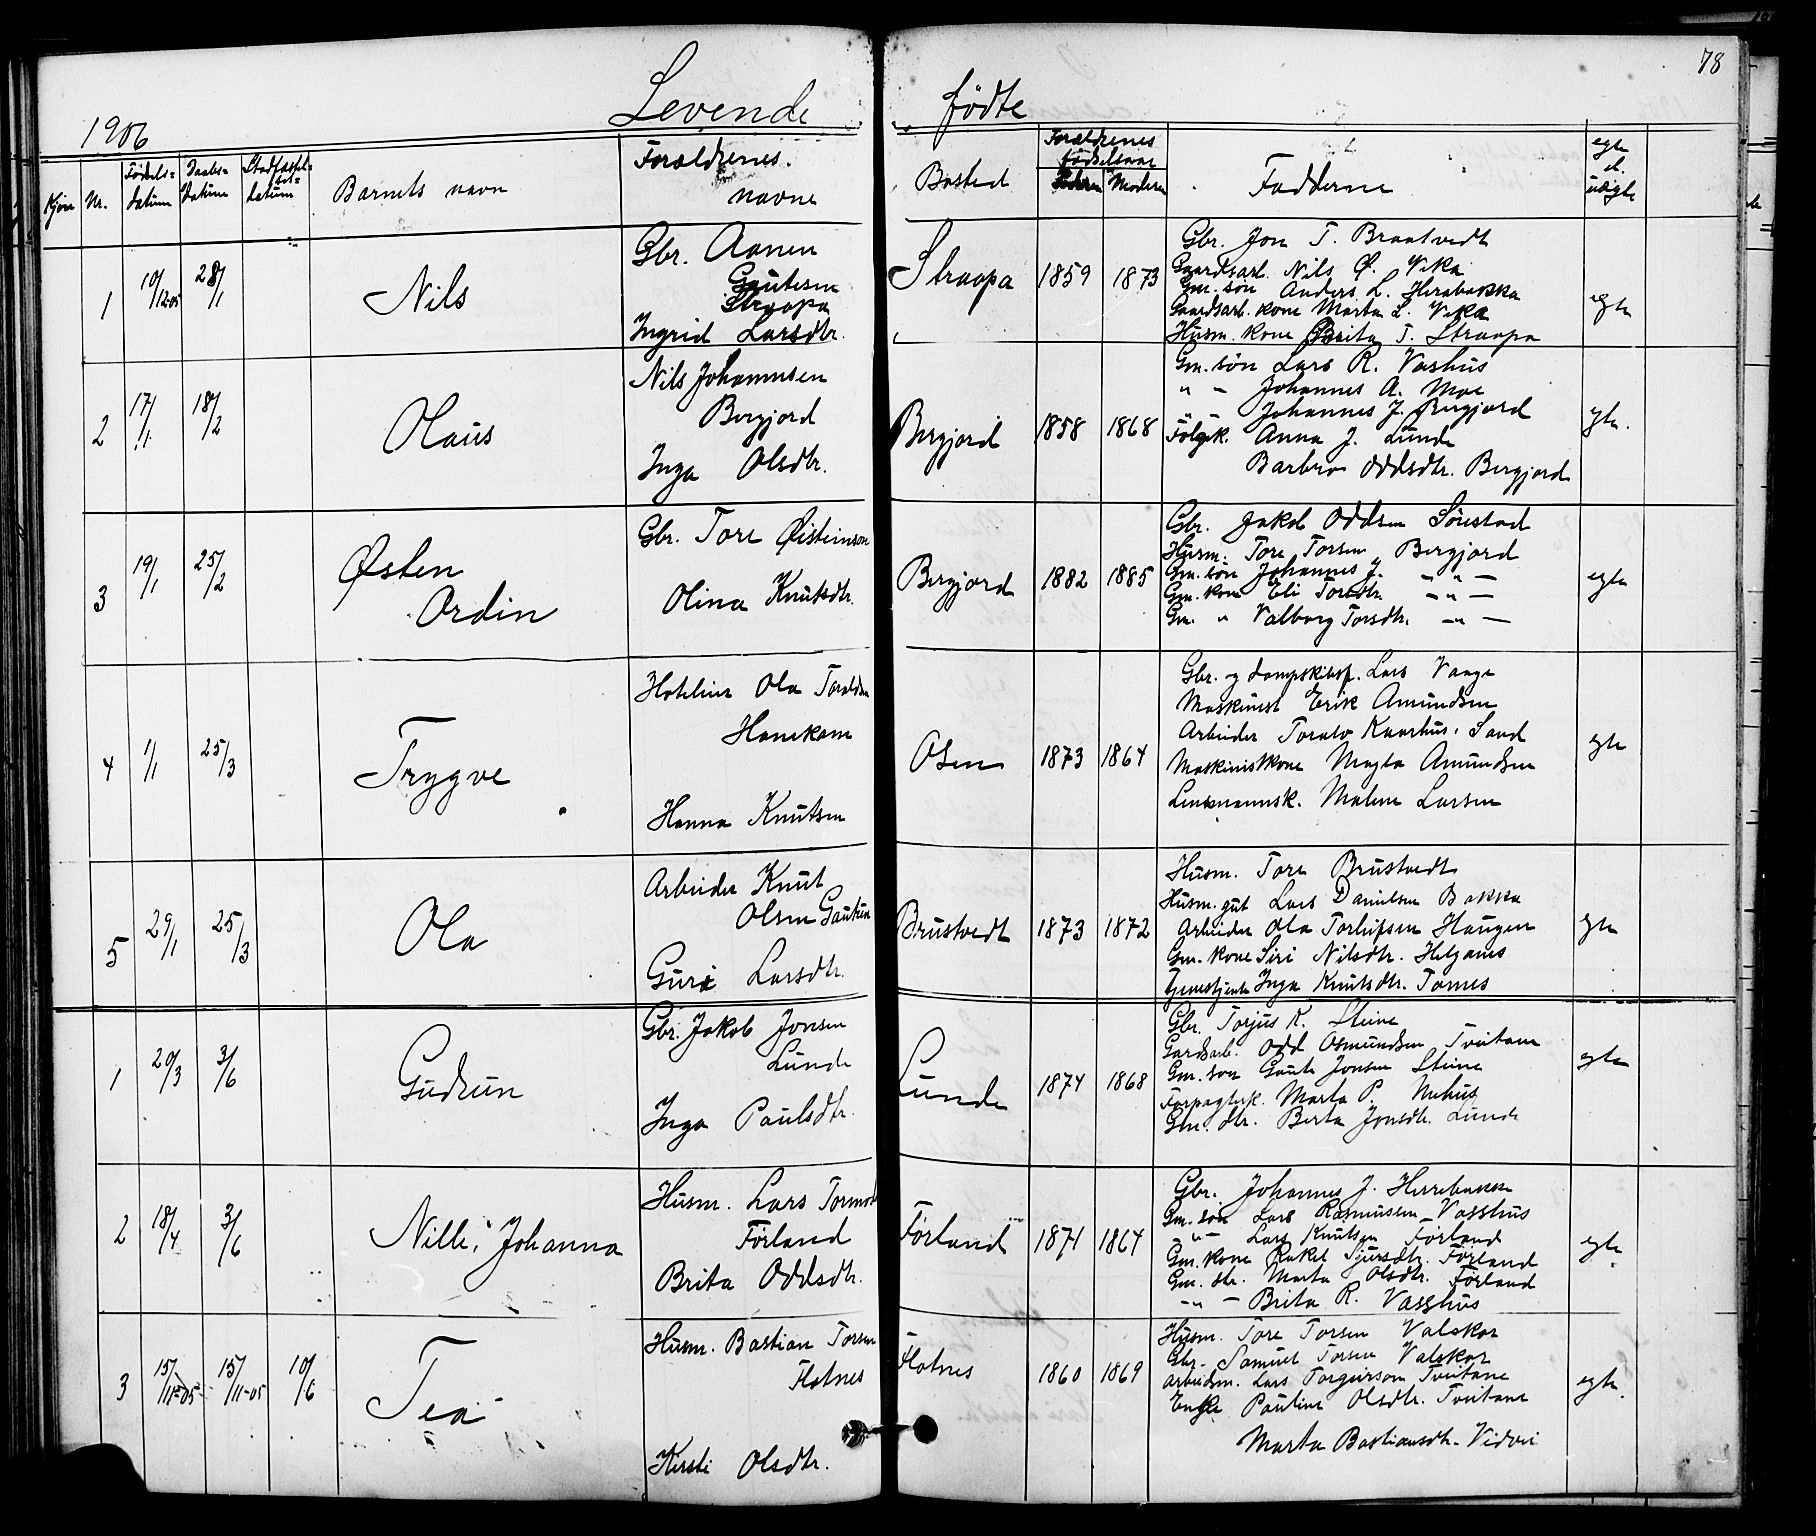 78
1906 Levende fødte
Kjøn Nr. Fødsels= datum Daabs= Datum Stadfæstel= ses= datum Barnets navn Forældrenes navne Bosted Forældrenes fødselsaar Faderen Moderen Fadderne egte el. uægte
1 10/12-05 28/1 Nils
Gbr. Aanen
Gautesen
Straapa
Ingrid Larsdtr.
Straapa 1859 1873
Gbr. Jon T. Braatvedt
Gaardsarb. Nils Ø. Veka
Gm. søn Anders L. Herabakka
Gaardsarb. kone Marta L. Veka
Husm. kone Brita T. Straapa
egte
2 17/1 18/2 Olaus
Nils Johannesen
Bergjord
Inga Olsdtr.
Bergjord 1858 1868
Gm. søn Lars R. Vashus
" - Johannes A. Moe
" - Johannes J. Bergjord
Følgek. Anna J. Lunde
Barbro Oddsdtr. Bergjord
egte.
3 19/1 25/2 Østen
Ordin
Gbr. Tore Øisteinson
Olina Knutsdtr.
Bergjord 1882 1885
Gbr. Jakob Oddsen Sørestad
Husm. Tore Torsen Bergjord
Gm. søn Johannes J. - " -
Gm. kone Eli Toresdtr. - " -
Gm. " Valborg Torsdtr. - " -
egte
4 1/1 25/3 Trygve
Hotelier Ola Toraldsen
Hanekam
Hanna Knutsen
Osen 1873 1864
Gbr. og dampskibsexp. Lars Vaage
Maskinist Erik Amundsen
Arbeider Torato Kaarhus, Sand
Maskinistkone Magta Amundsen
Lensmannsk. Malene Larsen
egte
5 29/1 25/3 Ola
Arbeider Knut
Olsen Gautun
Guri Larsdtr.
Brustvedt 1873 1872
Husm. Tore Brustvedt
Husm. gut Lars Danielsen Bakka
Arbeider Ola Torleifsen Haugen
Gm. kone Siri Nilsdtr. Helganes
Tjenestjente Inga Knutsdtr. Tornes
egte
1 20/3 3/6 Gudrun
Gbr. Jakob Jonsen
Lunde
Inga Paulsdtr.
Lunde 1874 1868
Gbr. Torjus K. Steine
Gardsarb. Odd Osmundsen Tveitane
Gm. søn Gaute Jonsen Steine
Forpagterk. Marta P. Nuhus
Gm. dtr. Berta Jonsdtr. Lunde
egte
2 18/4 3/6 Nilli, Johanna
Husm. Lars Tormod
Førland
Brita Oddsdtr.
Førland 1871 1864
Gbr. Johannes J. Herrebakka
Gm. søn Lars Rasmussen Vasshus
- " - Lars Knutsen Førland
Gm. kone Rakel Sjursdtr. Førland
Gm. dtr. Marta Olsdtr. Førland
- " - Brita R. Vasshus
egte
3 15/11-05 15/11-05 10/6 Tea
Husm. Bastian Torsen
Flotnes
Kirsti Olsdtr.
Flotnes 1860 1869
Husm. Tore Torsen Valskor
Gbr. Samuel Torsen Valskor
Arbeidsm. Lars Torgeirson Tveitane
Enke Pauline Olsdtr. Tveitane
Marta Bastiansdtr. Vidvei
egte.